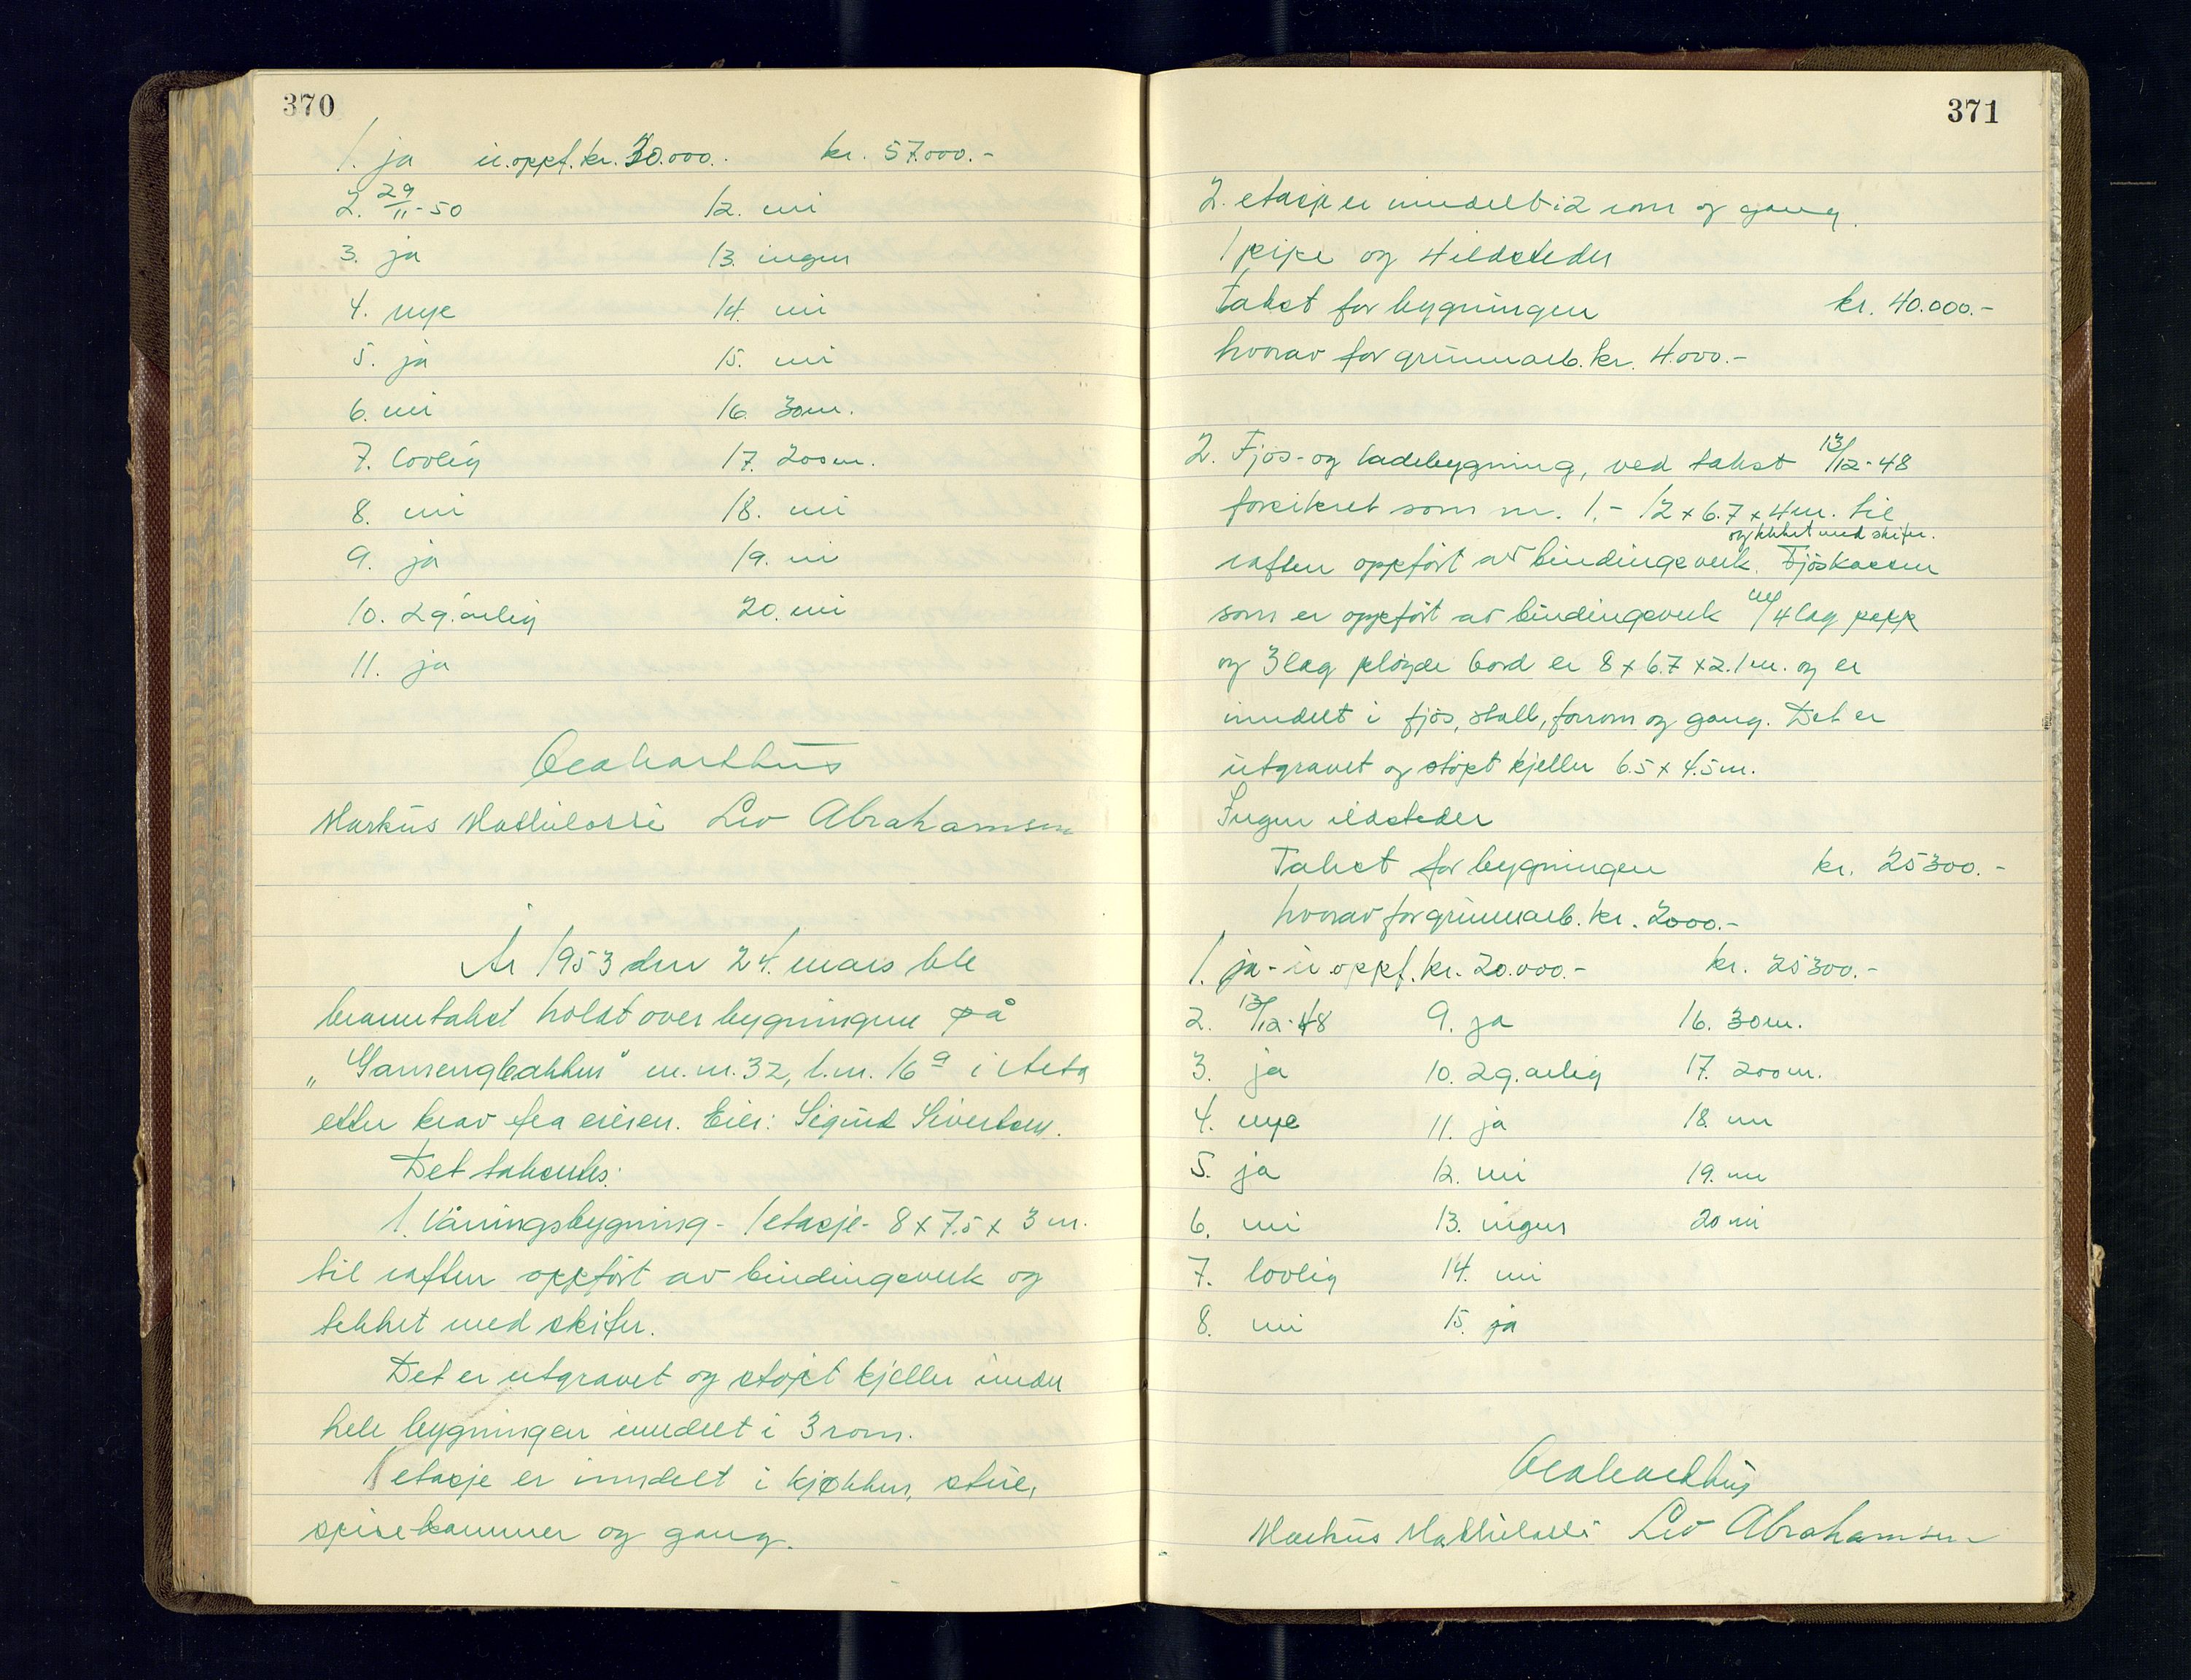 370
1. ja u. oppf. kr. 30.000.- kr. 57.000.-
2. 29/11-50 12. nei
3. ja 13. ingen
4. nye 14. nei
5. ja 15. nei
6. nei 16. 30m.
7. lovlig 17. 200m.
8. nei 18. nei
9. ja 19. nei
10. 2 g. årlig 20. nei
11. ja
Markus Leo Abrahamsen
År 1953 den 24. mars ble
branntakst holdt over bygningene på
g.nr. 32, b.nr. 16a i Alta
etter krav fra eieren. Eier: Sigurd Sivertsen.
Det takseres:
1. Våningsbygning - 1 etasje - 8 x 7.5 x 3 m.
til raften oppført av bindingsverk og
tekket med skifer.
Det er utgravet og støpt kjeller under
hele bygningen inndelt i 3 rom.
1 etasje er inndelt i kjøkken, stue,
spisekammer og gang.
371
2. etasje er inndelt i 2 rom og gang.
1 pipe og 4 ildsteder
Takst for bygningen kr. 40.000.-
hvorav for grunnarb. kr. 4.000.-
2. Fjøs- og ladebygning, ved takst 13/12-48
forsikret som nr. 1. - 12 x 6.7 x 4m. til
og tekket med skifer.
raften oppført av bindingsverk. Fjøskassen
som er oppført av bindingsverk m/4 lag papp
og 3 lag pløyde bord er 8 x 6.7 x 2.1m. og er
inndelt i fjøs, stall, forrom og gang. Det er
utgravet og støpt kjeller 6.5 x 4.5m.
Ingen ildsteder
Takst for bygningen kr. 25300.-
hvorav for grunnarb. kr. 2000.-
1. ja - u. oppf. kr. 20.000.- kr. 25300.-
2. 13/12-48 9. ja 16. 30m.
3. ja 10. 2 g. årlig 17. 200m.
4. nye 11. ja 18. nei
5. ja 12. nei 19. nei
6. nei 13. ingen 20 nei
7. lovlig 14. nei
8. nei 15. ja
Markus Leo Abrahamsen